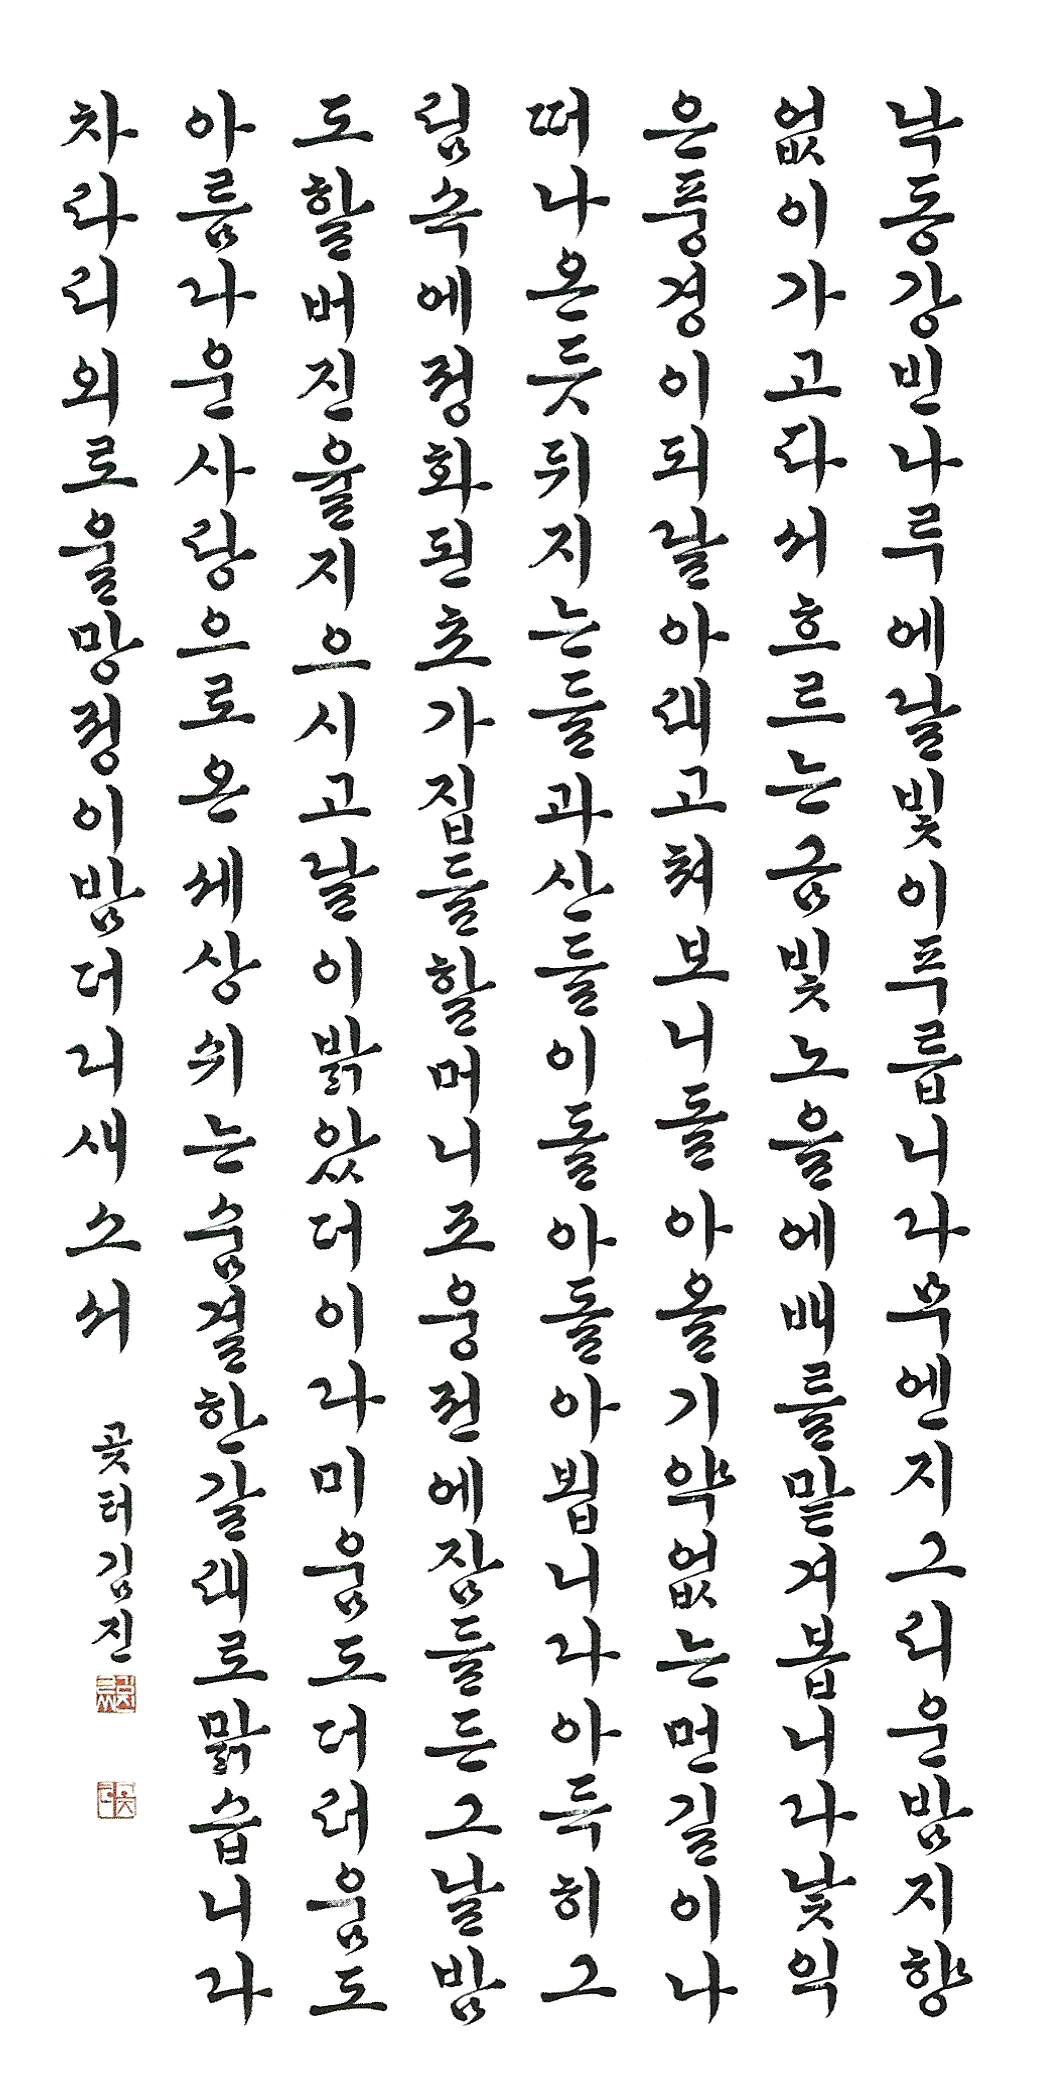 낙동강빈나루에달빛이푸릅니다무엔지그리운밤지향
없이가고파서흐르는금빛노을에배를맡겨봅니다낯익
은풍경이되달아래고쳐보니돌아올기약없는먼길이나
떠나온듯뒤지는들과산들이돌아돌아뵙니다아득히그
림속에정화된초가집들할머니조웅전에잠들든그날밤
도할버진율지으시고달이밝았더이다미움도더러움도
아름다운사랑으로온세상쉬는숨결한갈래로맑습니다
차라리외로울망정이밤더디새소서
곷터김진